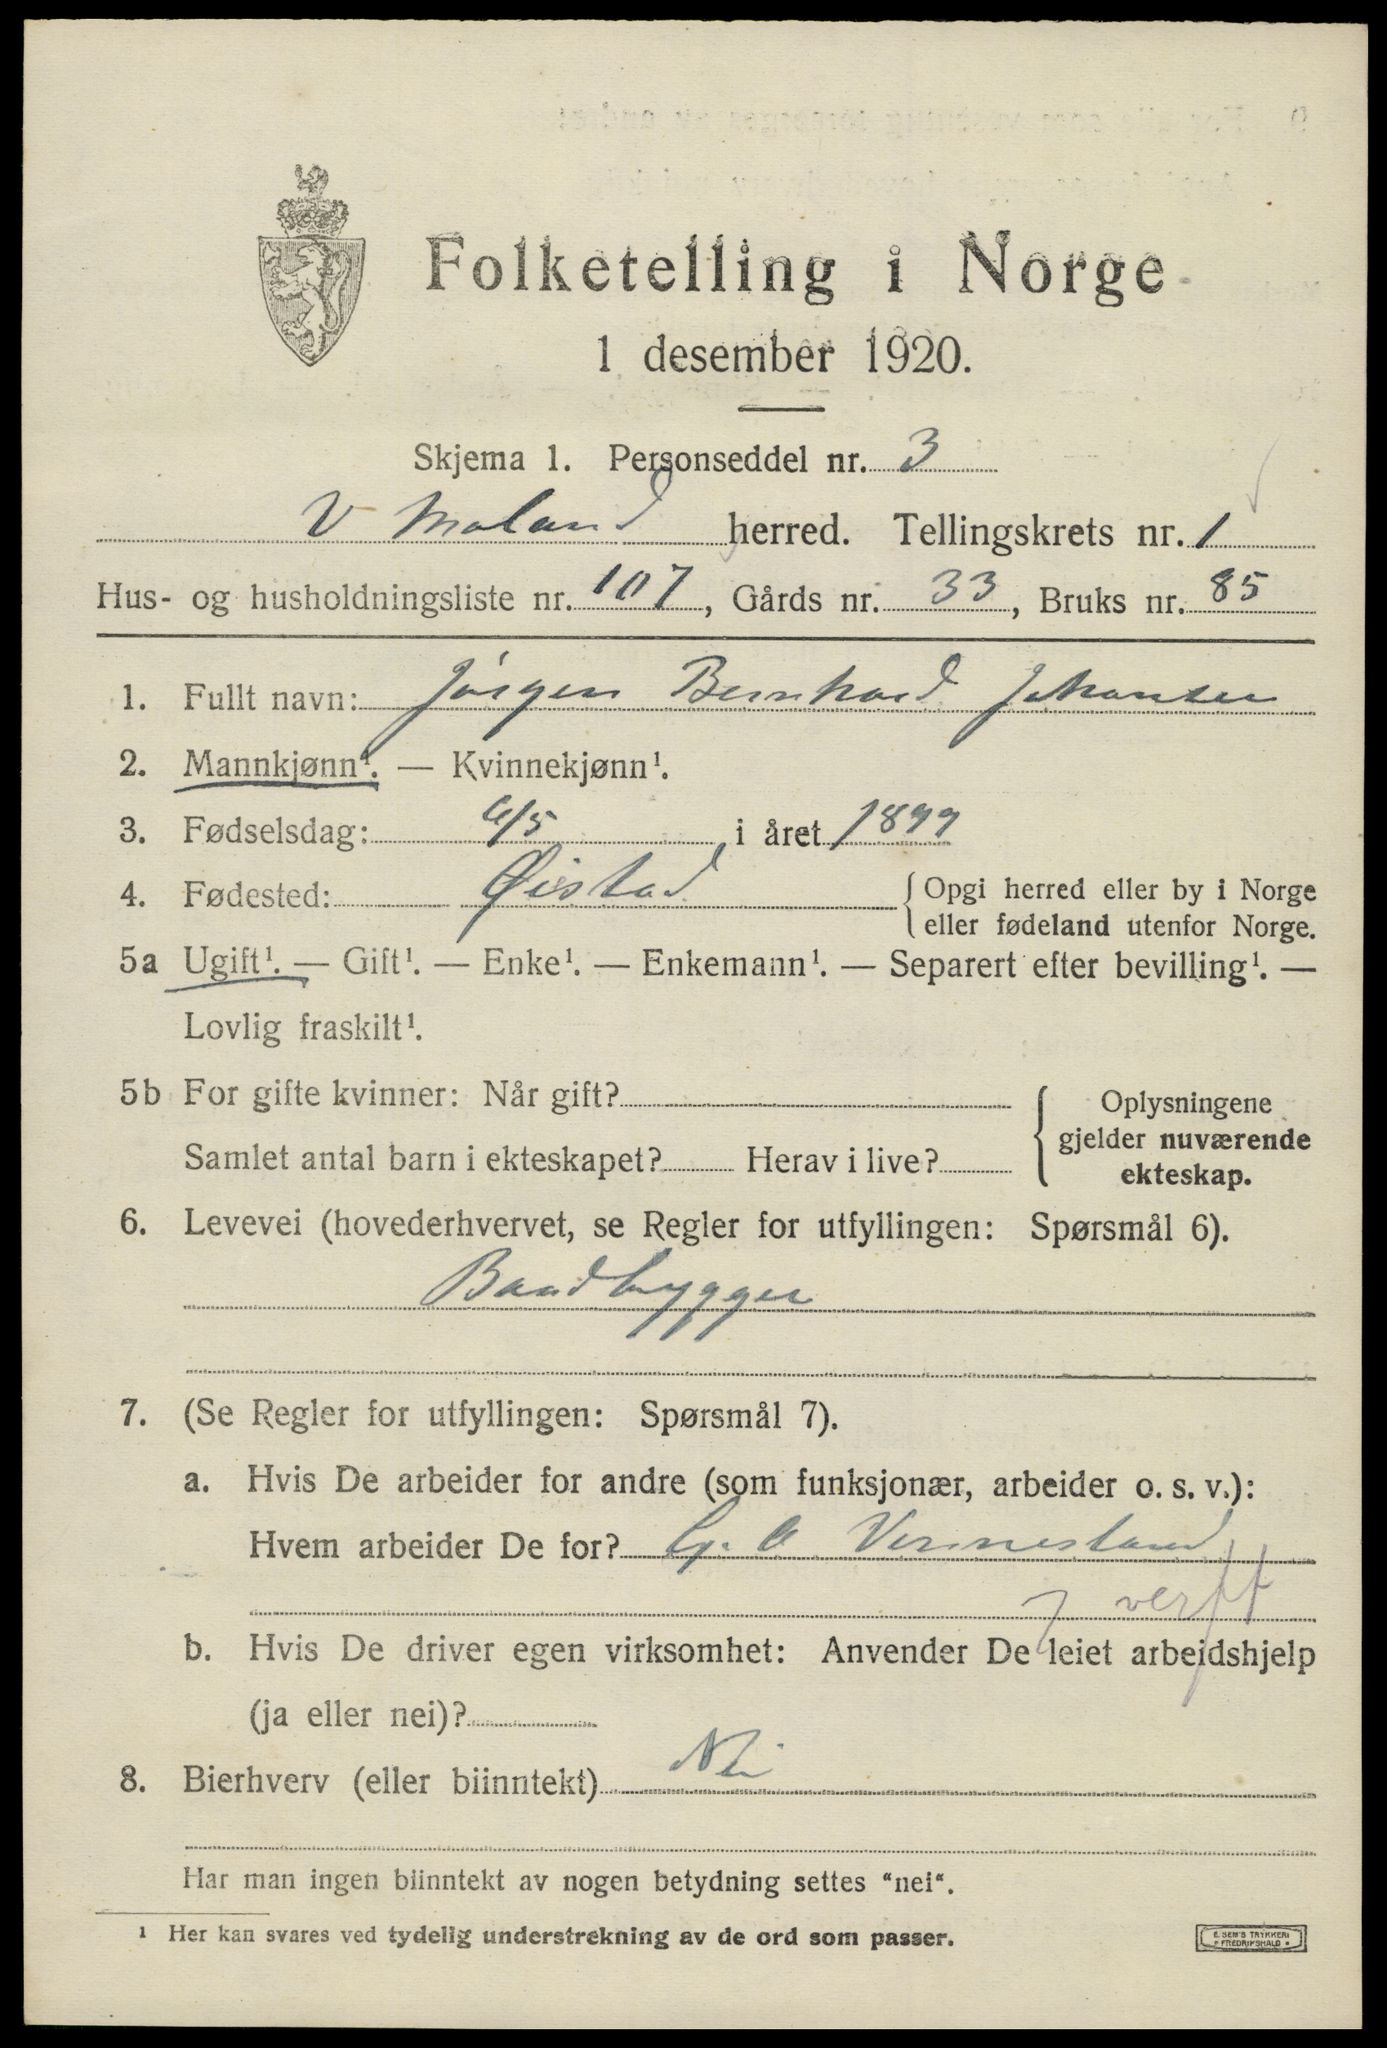 Folketelling i Norge
1 desember 1920.
Skjema 1. Personseddel nr. 3
V Moland herred. Tellingskrets nr. 1
Hus- og husholdningsliste nr. 107, Gårds nr. 33, Bruks nr. 85
1. Fullt navn: Jörgen Bernhard Johansen
2. Mannkjønn¹. — Kvinnekjønn¹.
3. Fødselsdag: 6/5 i året 1899
4. Fødested: Øistad { Opgi herred eller by i Norge
eller fødeland utenfor Norge.
5a Ugift¹. — Gift¹. — Enke¹. — Enkemann¹. — Separert efter bevilling¹. —
Lovlig fraskilt¹.
5b For gifte kvinner: Når gift?
Samlet antal barn i ekteskapet? Herav i live?
{ Oplysningene
gjelder nuværende
ekteskap.
6. Levevei (hovederhvervet, se Regler for utfyllingen: Spørsmål 6).
Baadbygger
7. (Se Regler for utfyllingen: Spørsmål 7).
a. Hvis De arbeider for andre (som funksjonær, arbeider o. s. v.):
Hvem arbeider De for? Vennesland
verft
b. Hvis De driver egen virksomhet: Anvender De leiet arbeidshjelp
(ja eller nei)?
8. Bierhverv (eller biinntekt) Nei
Har man ingen biinntekt av nogen betydning settes "nei".
¹ Her kan svares ved tydelig understrekning av de ord som passer.
E. SEM'S TRYKKERI
FREDRIKSHALD